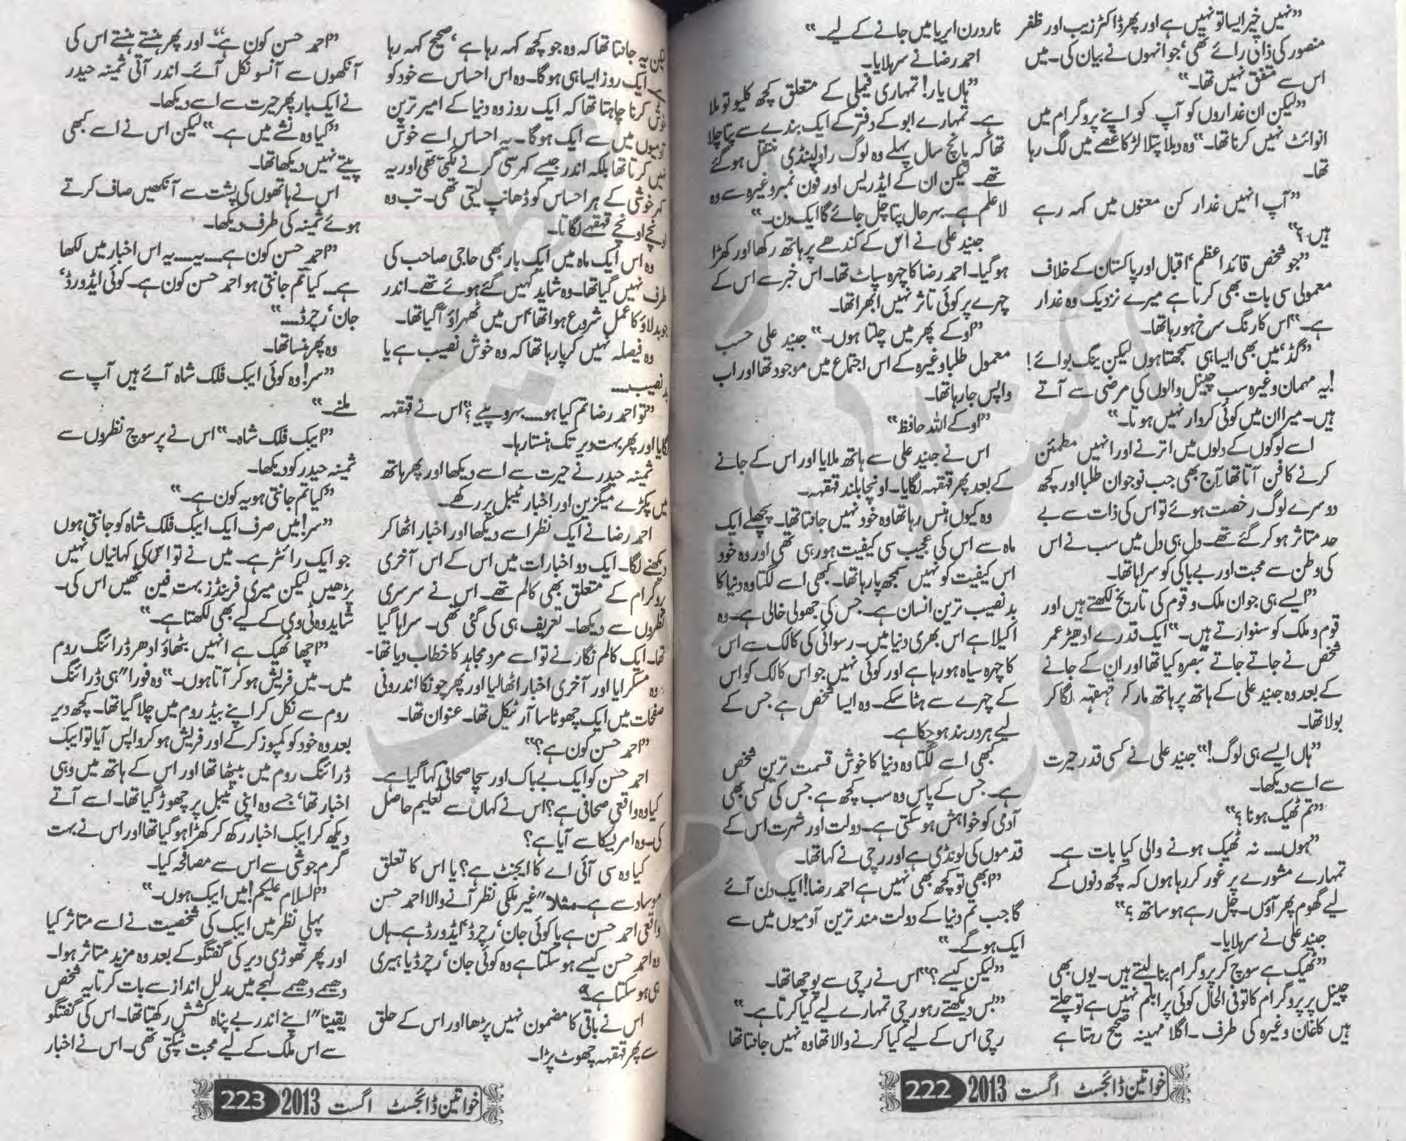 "نہیں خیر ایسا تو نہیں ہے اور پھر ڈاکٹر زیب اور ظفر
منصور کی ذاتی رائے تھی' جو انہوں نے بیان کی۔ میں
اس سے متفق نہیں تھا۔"
"لیکن ان غداروں کو آپ کو اپنے پروگرام میں
انوائٹ نہیں کرنا تھا۔" وہ دبلا پتلا لڑکا غصے میں لگ رہا
تھا۔
"آپ انہیں غدار کن معنوں میں کہہ رہے
ہیں؟"
"جو شخص قائداعظم' اقبال اور پاکستان کے خلاف
معمولی سی بات بھی کرتا ہے میرے نزدیک وہ غدار
ہے۔" اس کا رنگ سرخ ہو رہا تھا۔
"گڈ' میں بھی ایسا ہی سمجھتا ہوں لیکن ینگ بوائے!
یہ مہمان وغیرہ سب چینل والوں کی مرضی سے آتے
ہیں۔ میرا ان میں کوئی کردار نہیں ہوتا۔"
اسے لوگوں کے دلوں میں اترنے اور انہیں مطمئن
کرنے کا فن آتا تھا۔ آج بھی جب نوجوان طلبا اور کچھ
دوسرے لوگ رخصت ہوئے تو اس کی ذات سے بے
حد متاثر ہو کر گئے تھے۔ دل ہی دل میں سب نے اس
کی وطن سے محبت اور بے باکی کو سراہا تھا۔
"ایسے ہی جوان ملک و قوم کی تاریخ لکھتے ہیں اور
قوم و ملک کو سنوارتے ہیں۔" ایک قدرے ادھیڑ عمر
شخص نے جاتے جاتے تبصرہ کیا تھا اور ان کے جانے
کے بعد وہ جنید علی کے ہاتھ پر ہاتھ مار کر قہقہہ لگا کر
بولا تھا۔
"ہاں ایسے ہی لوگ!" جنید علی نے کسی قدر حیرت
سے اسے دیکھا۔
"تم ٹھیک ہو نا؟"
"ہوں۔۔۔ نہ ٹھیک ہونے والی کیا بات ہے۔
تمہارے مشورے پر غور کر رہا ہوں کہ کچھ دنوں کے
لیے گھوم پھر آؤں۔ چل رہے ہو ساتھ؟"
جنید علی نے سر ہلایا۔
"ٹھیک ہے سوچ کر پروگرام بنا لیتے ہیں۔ یوں بھی
چینل پر پروگرام کا تو فی الحال کوئی پرابلم نہیں ہے تو چلتے
ہیں کاغان وغیرہ کی طرف۔ اگلا مہینہ صحیح رہتا ہے
ناردرن ایریا میں جانے کے لیے۔"
احمد رضا نے سر ہلایا۔
"ہاں یار! تمہاری فیملی کے متعلق کچھ کلیو تو ملا
ہے۔ تمہارے ابو کے دفتر کے ایک بندے سے پتا چلا
تھا کہ پانچ سال پہلے وہ لوگ راولپنڈی منتقل ہو گئے
تھے۔ لیکن ان کے ایڈریس اور فون نمبر وغیرہ سے وہ
لاعلم ہے۔ بہرحال پتا چل جائے گا ایک دن۔"
جنید علی نے اس کے کندھے پر ہاتھ رکھا اور کھڑا
ہو گیا۔ احمد رضا کا چہرہ سپاٹ تھا۔ اس خبر سے اس کے
چہرے پر کوئی تاثر نہیں ابھرا تھا۔
"اوکے پھر میں چلتا ہوں۔" جنید علی حسب
معمول طلبا وغیرہ کے اس اجتماع میں موجود تھا اور اب
واپس جا رہا تھا۔
"اوکے اللہ حافظ"
اس نے جنید علی سے ہاتھ ملایا اور اس کے جانے
کے بعد پھر قہقہہ لگایا۔ اونچا بلند قہقہہ۔
وہ کیوں ہنس رہا تھا وہ خود نہیں جانتا تھا۔ پچھلے ایک
ماہ سے اس کی عجیب سی کیفیت ہو رہی تھی اور وہ خود
اس کیفیت کو نہیں سمجھ پا رہا تھا۔ کبھی اسے لگتا وہ دنیا کا
بدنصیب ترین انسان ہے۔ جس کی جھولی خالی ہے۔ وہ
اکیلا ہے اس بھری دنیا میں۔ رسوائی کی کالک سے اس
کا چہرہ سیاہ ہو رہا ہے اور کوئی نہیں جو اس کالک کو اس
کے چہرے سے ہٹا سکے۔ وہ ایسا شخص ہے جس کے
لیے ہر در بند ہو چکا ہے۔
کبھی اسے لگتا وہ دنیا کا خوش قسمت ترین شخص
ہے۔ جس کے پاس وہ سب کچھ ہے جس کی کسی بھی
آدمی کو خواہش ہو سکتی ہے۔ دولت اور شہرت اس کے
قدموں کی لونڈی ہے اور رچی نے کہا تھا۔
"ابھی تو کچھ بھی نہیں ہے احمد رضا! ایک دن آئے
گا جب تم دنیا کے دولت مند ترین آدمیوں میں سے
ایک ہو گے۔"
"لیکن کیسے؟" اس نے رچی سے پوچھا تھا۔
"بس دیکھتے رہو رچی تمہارے لیے کیا کرتا ہے۔"
رچی اس کے لیے کیا کرنے والا تھا وہ نہیں جانتا تھا
خواتین ڈائجسٹ اگست 2013 222
لیکن یہ جانتا تھا کہ وہ جو کچھ کہہ رہا ہے' صحیح کہہ رہا
ہے ایک روز ایسا ہی ہو گا۔ وہ اس احساس سے خود کو
خوش کرنا چاہتا تھا کہ ایک روز وہ دنیا کے امیر ترین
آدمیوں میں سے ایک ہو گا۔ یہ احساس اسے خوش
نہیں کرتا تھا بلکہ اندر جیسے کہر سی گرنے لگتی تھی اور یہ
کہر خوشی کے ہر احساس کو ڈھانپ لیتی تھی۔ تب وہ
اونچے اونچے قہقہے لگاتا۔
وہ اس ایک ماہ میں ایک بار بھی حاجی صاحب کی
طرف نہیں گیا تھا۔ وہ شاید کہیں گئے ہوئے تھے۔ اندر
جو بدلاؤ کا عمل شروع ہوا تھا' اس میں ٹھہراؤ آ گیا تھا۔
وہ فیصلہ نہیں کر پا رہا تھا کہ وہ خوش نصیب ہے یا
بدنصیب۔۔۔۔
"تو احمد رضا تم کیا ہو۔۔۔ بہروپیے؟" اس نے قہقہہ
لگایا اور پھر بہت دیر تک ہنستا رہا۔
ثمینہ حیدر نے حیرت سے اسے دیکھا اور پھر ہاتھ
میں پکڑے میگزین اور اخبار ٹیبل پر رکھے۔
احمد رضا نے ایک نظر اسے دیکھا اور اخبار اٹھا کر
دیکھنے لگا۔ ایک دو اخبارات میں اس کے اس آخری
پروگرام کے متعلق بھی کالم تھے۔ اس نے سرسری
نظروں سے دیکھا۔ تعریف ہی کی گئی تھی۔ سراہا گیا
تھا۔ ایک کالم نگار نے تو اسے مرد مجاہد کا خطاب دیا تھا۔
وہ مسکرایا اور آخری اخبار اٹھا لیا اور پھر چونکا اندرونی
صفحات میں ایک چھوٹا سا آرٹیکل تھا۔ عنوان تھا۔
"احمد حسن کون ہے؟"
احمد حسن کو ایک بے باک اور سچا صحافی کہا گیا ہے۔
کیا وہ واقعی صحافی ہے؟ اس نے کہاں سے تعلیم حاصل
کی۔ وہ امریکا سے آیا ہے؟
کیا وہ سی آئی اے کا ایجنٹ ہے؟ یا اس کا تعلق
موساد سے ہے۔ مثلا" غیر ملکی نظر آنے والا احمد حسن
واقعی احمد حسن ہے یا کوئی جان' رچرڈ' ایڈورڈ ہے۔ ہاں
وہ احمد حسن کیسے ہو سکتا ہے وہ کوئی جان' رچرڈ یا ہیری
ہی ہو سکتا ہے۔"
اس نے باقی کا مضمون نہیں پڑھا اور اس کے حلق
سے پھر قہقہہ چھوٹ پڑا۔
"احمد حسن کون ہے"۔ اور پھر ہنستے ہنستے اس کی
آنکھوں سے آنسو نکل آئے۔ اندر آتی ثمینہ حیدر
نے ایک بار پھر حیرت سے اسے دیکھا۔
"کیا وہ نشے میں ہے۔" لیکن اس نے اسے کبھی
پیتے نہیں دیکھا تھا۔
اس نے ہاتھوں کی پشت سے آنکھیں صاف کرتے
ہوئے ثمینہ کی طرف دیکھا۔
"احمد حسن کون ہے۔۔۔ یہ۔۔۔ یہ اس اخبار میں لکھا
ہے۔ کیا تم جانتی ہو احمد حسن کون ہے۔ کوئی ایڈورڈ'
جان' رچرڈ۔۔۔۔"
وہ پھر ہنسا تھا۔
"سر! وہ کوئی ایبک فلک شاہ آئے ہیں آپ سے
ملنے۔"
"ایبک فلک شاہ۔" اس نے پرسوچ نظروں سے
ثمینہ حیدر کو دیکھا۔
"کیا تم جانتی ہو یہ کون ہے۔"
"سر! میں صرف ایک ایبک فلک شاہ کو جانتی ہوں
جو ایک رائٹر ہے۔ میں نے تو اس کی کہانیاں نہیں
پڑھیں لیکن میری فرینڈز بہت فین تھیں اس کی۔
شاید وہ ٹی وی کے لیے بھی لکھتا ہے۔"
"اچھا ٹھیک ہے انہیں بٹھاؤ ادھر ڈرائنگ روم
میں۔ میں فریش ہو کر آتا ہوں۔" وہ فورا" ہی ڈرائنگ
روم سے نکل کر اپنے بیڈ روم میں چلا گیا تھا۔ کچھ دیر
بعد وہ خود کو کمپوز کر کے اور فریش ہو کر واپس آیا تو ایبک
ڈرائنگ روم میں بیٹھا تھا اور اس کے ہاتھ میں وہی
اخبار تھا' جسے وہ اپنی ٹیبل پر چھوڑ گیا تھا۔ اسے آتے
دیکھ کر ایبک اخبار رکھ کر کھڑا ہو گیا تھا اور اس نے بہت
گرم جوشی سے اس سے مصافحہ کیا۔
"السلام علیکم! میں ایبک ہوں۔"
پہلی نظر میں ایبک کی شخصیت نے اسے متاثر کیا
اور پھر تھوڑی دیر کی گفتگو کے بعد وہ مزید متاثر ہوا۔
دھیمے دھیمے لہجے میں مدلل انداز سے بات کرتا یہ شخص
یقینا" اپنے اندر بے پناہ کشش رکھتا تھا۔ اس کی گفتگو
سے اس ملک کے لیے محبت ٹپکتی تھی۔ اس نے اخبار
خواتین ڈائجسٹ اگست 2013 223